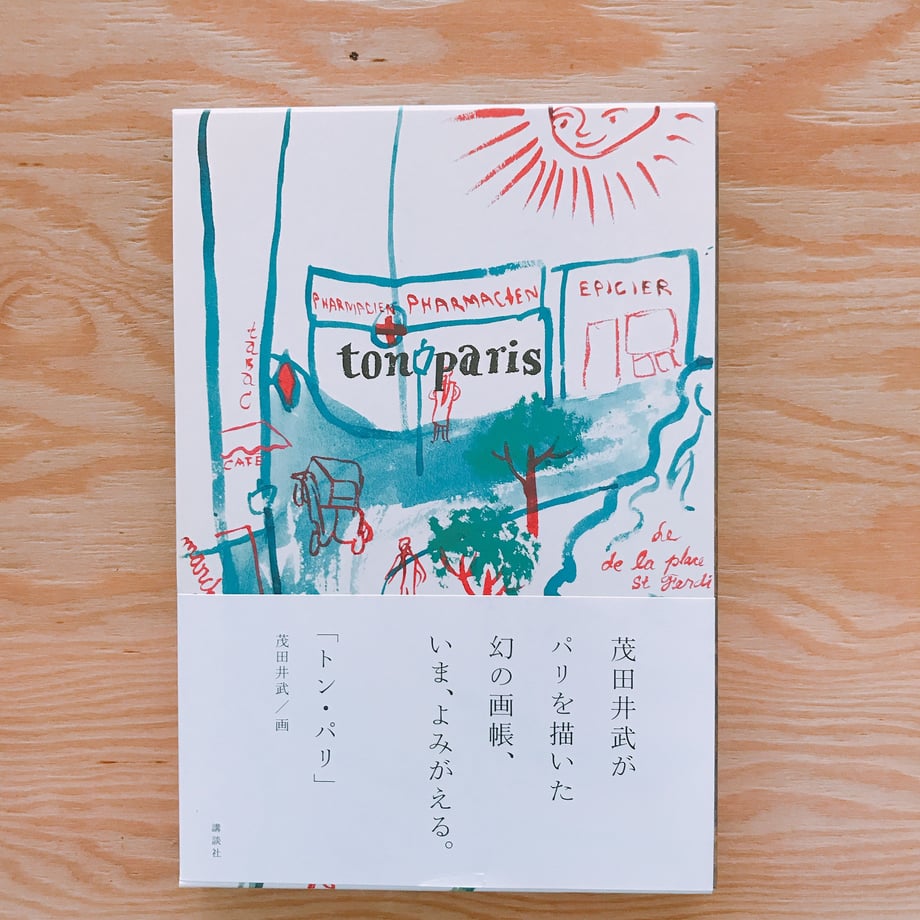 PHARMACIEN PHARMACIEN
EPICIER
ton paris
tabac
CAFE
de
de la place
St Ferdi
茂田井武が
パリを描いた
幻の画帳、
いま、よみがえる。
「トン・パリ」
茂田井武／画
講談社